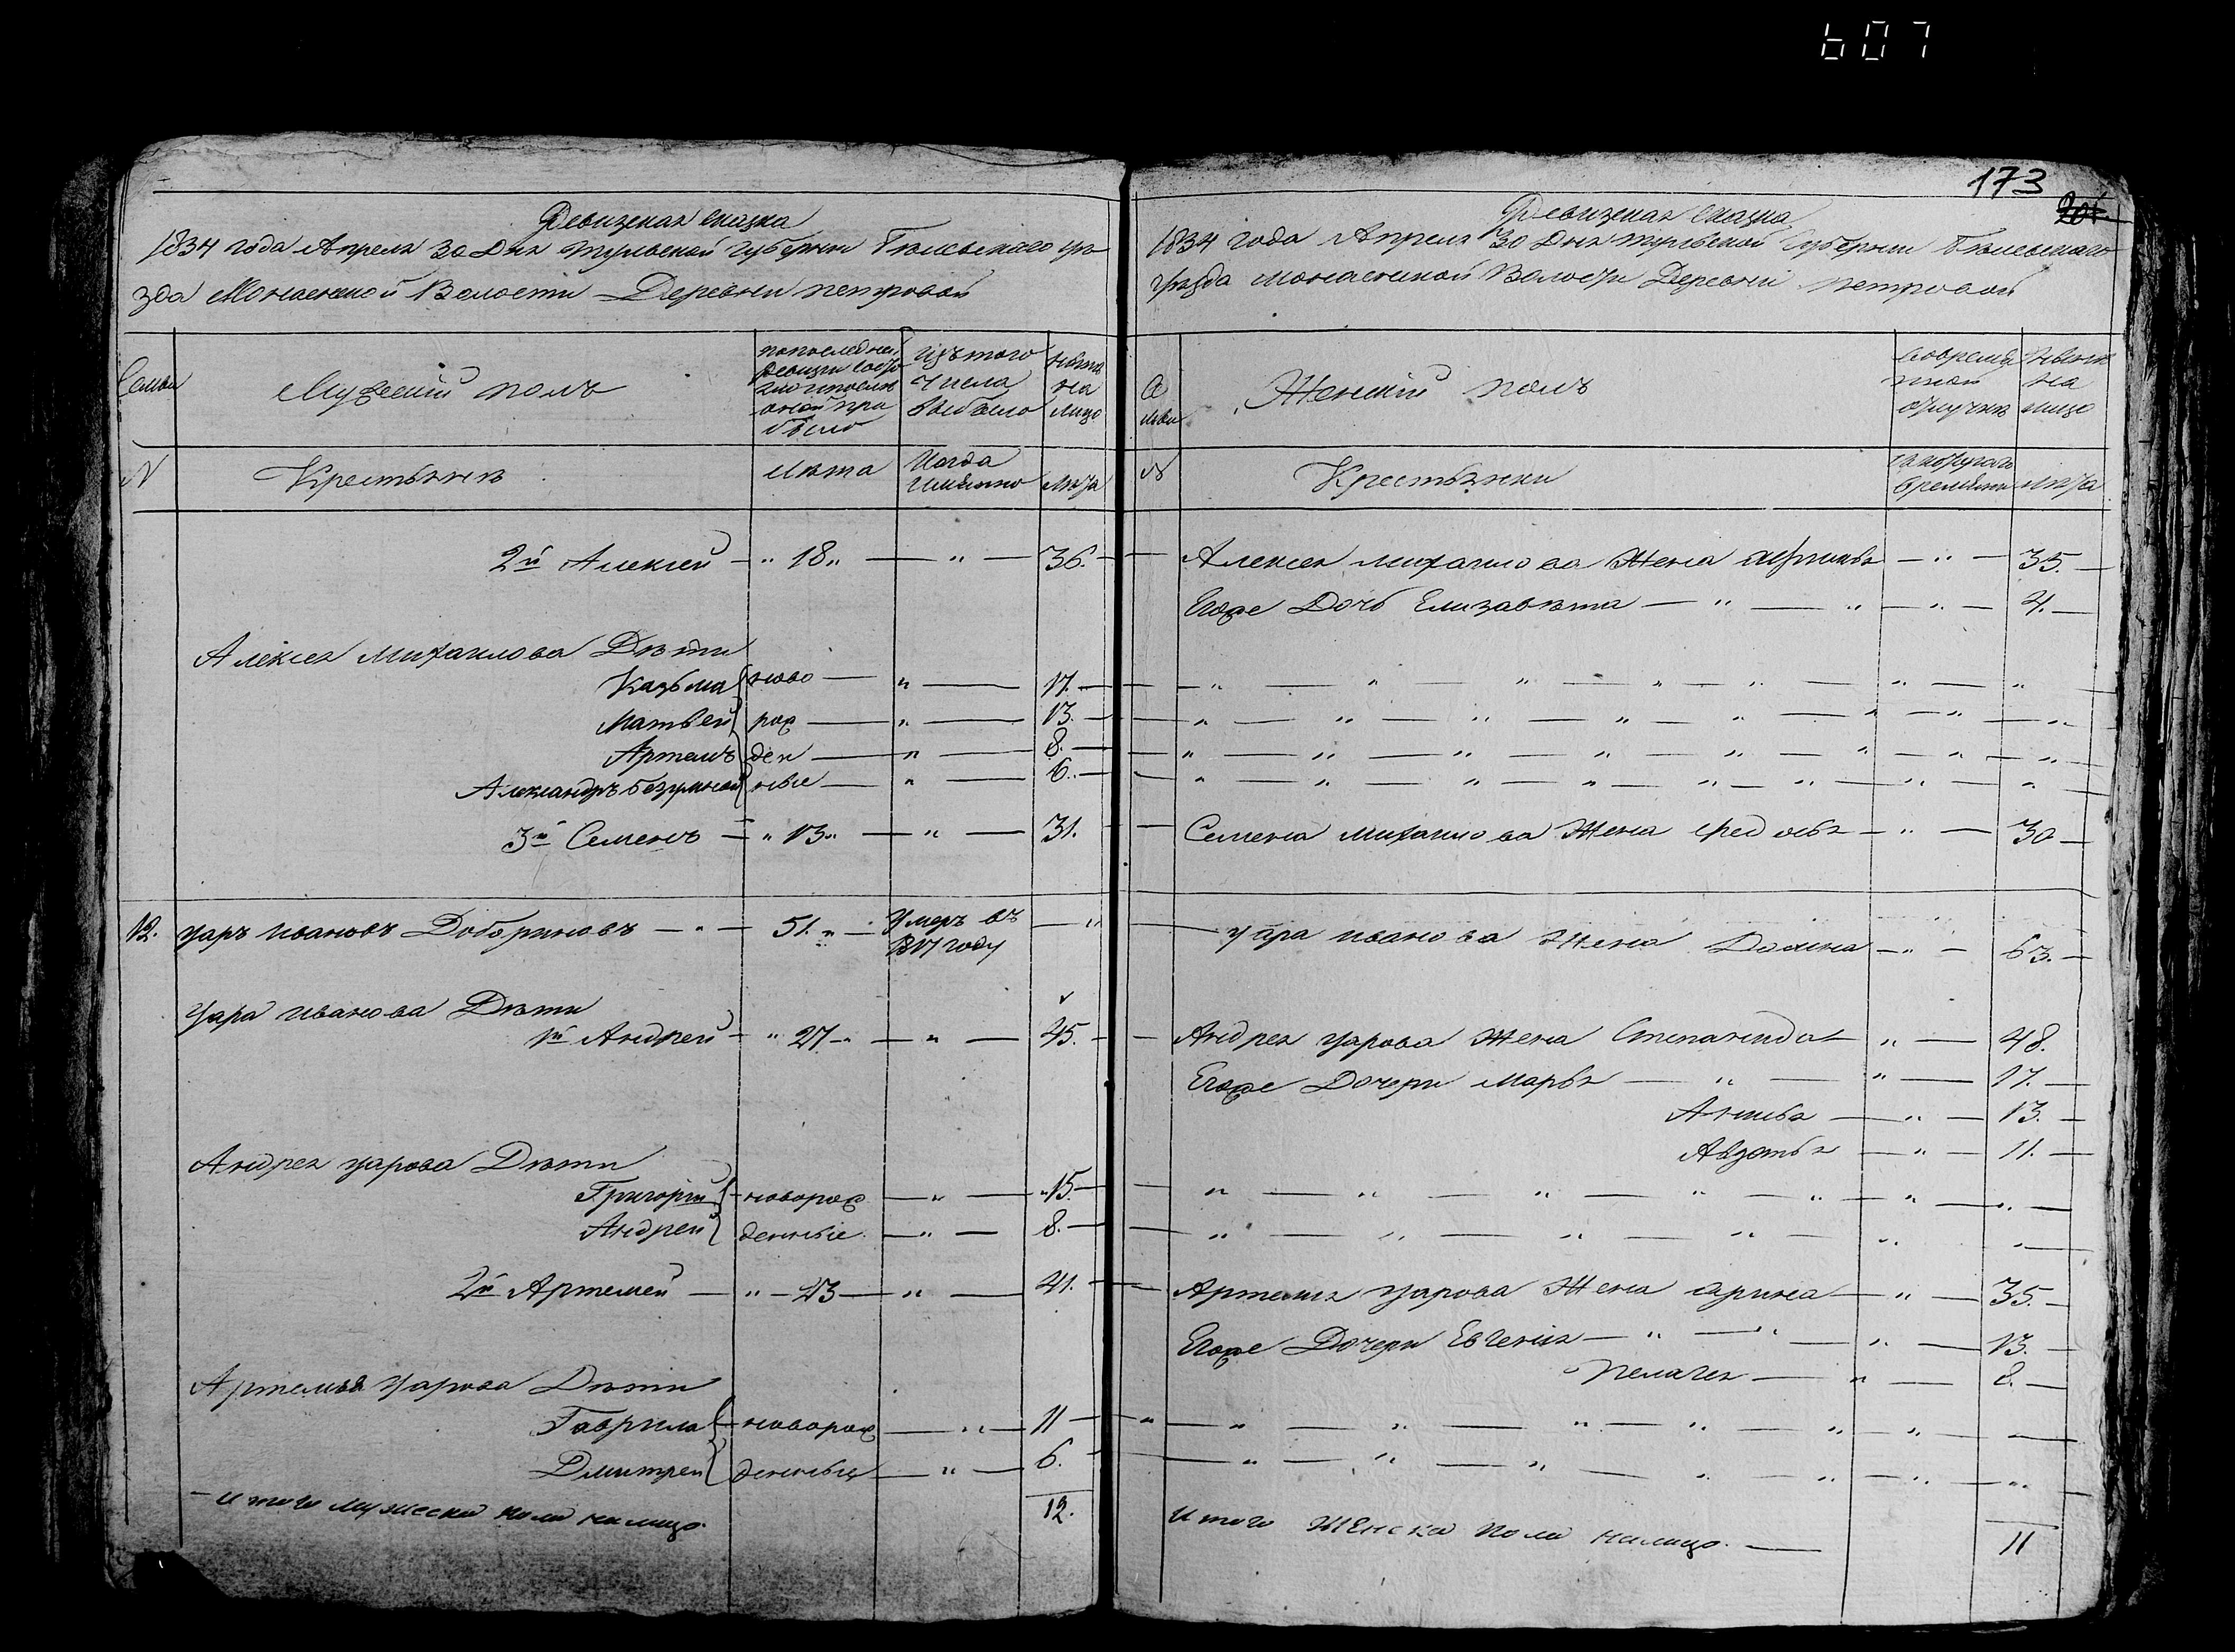 607
173
201
Ревизская сказка
1834 года Апреля 30 Дня тульской губернии Белевскаго уѣ
зда Монаенской Волости Деревни петровой
Семьи
Мужеский полъ
Изъ того
Числа
Выбыло
Нынѣ
на
лицо
N
Крестьяне
Лѣта
Когда
Имянно
Лѣта
2й Алексей — „ 18 „ — „ — 36.
Алексея михаилова Дѣти
Казьма ново — „ — 17.
Матвей рож — „ — 13.
Артемъ ден — „ — 8.
Александръ безумной ные — „ — 6.
3й Семенъ — „ 13 „ — „ — 31.
12. уаръ ивановъ Добориновъ — „ — 51. „ — Умеръ въ — „
1817 году
Уара иванова Дѣти
1й Андрей — „ 27 „ — „ — 45.
Андрея уарова Дѣти
Григорий новорож — „ — 15.
Андрей денные — „ — 8.
2й Артемей — „ 23 — „ — 41.
Артемья Уарова Дѣти
Гаврила новорож — „ — 11
Дмитрей денные — „ — 6.
Итого мужеска пола налицо. 12.
Ревизская сказка
1834 года Апреля 30 Дня тульской Губернии Белевскаго
уѣзда монаенской Волости Деревни петровой
Женский полъ
Нынѣ
на
лицо
N
Крестьянки
лѣта
Алексея михаилова Жена — „ — 35.
Егоже Дочь Елизавѣта — „ — „ — „ — 4.
Семена михаилова Жена Федосья — „ — 30
уара иванова Жена Домна — „ — 63.
Андрея уарова Жена Степанида — „ — 48.
Егоже Дочери марья — „ — „ — 17.
Анисья — „ — 13.
Авдотья — „ — 11.
Артемья Уарова Жена арина — „ — 35.
Егоже Дочери Евгения — „ — „ — „ — 13.
Пелагея — „ — 8.
Итого Женска пола налицо. — 11